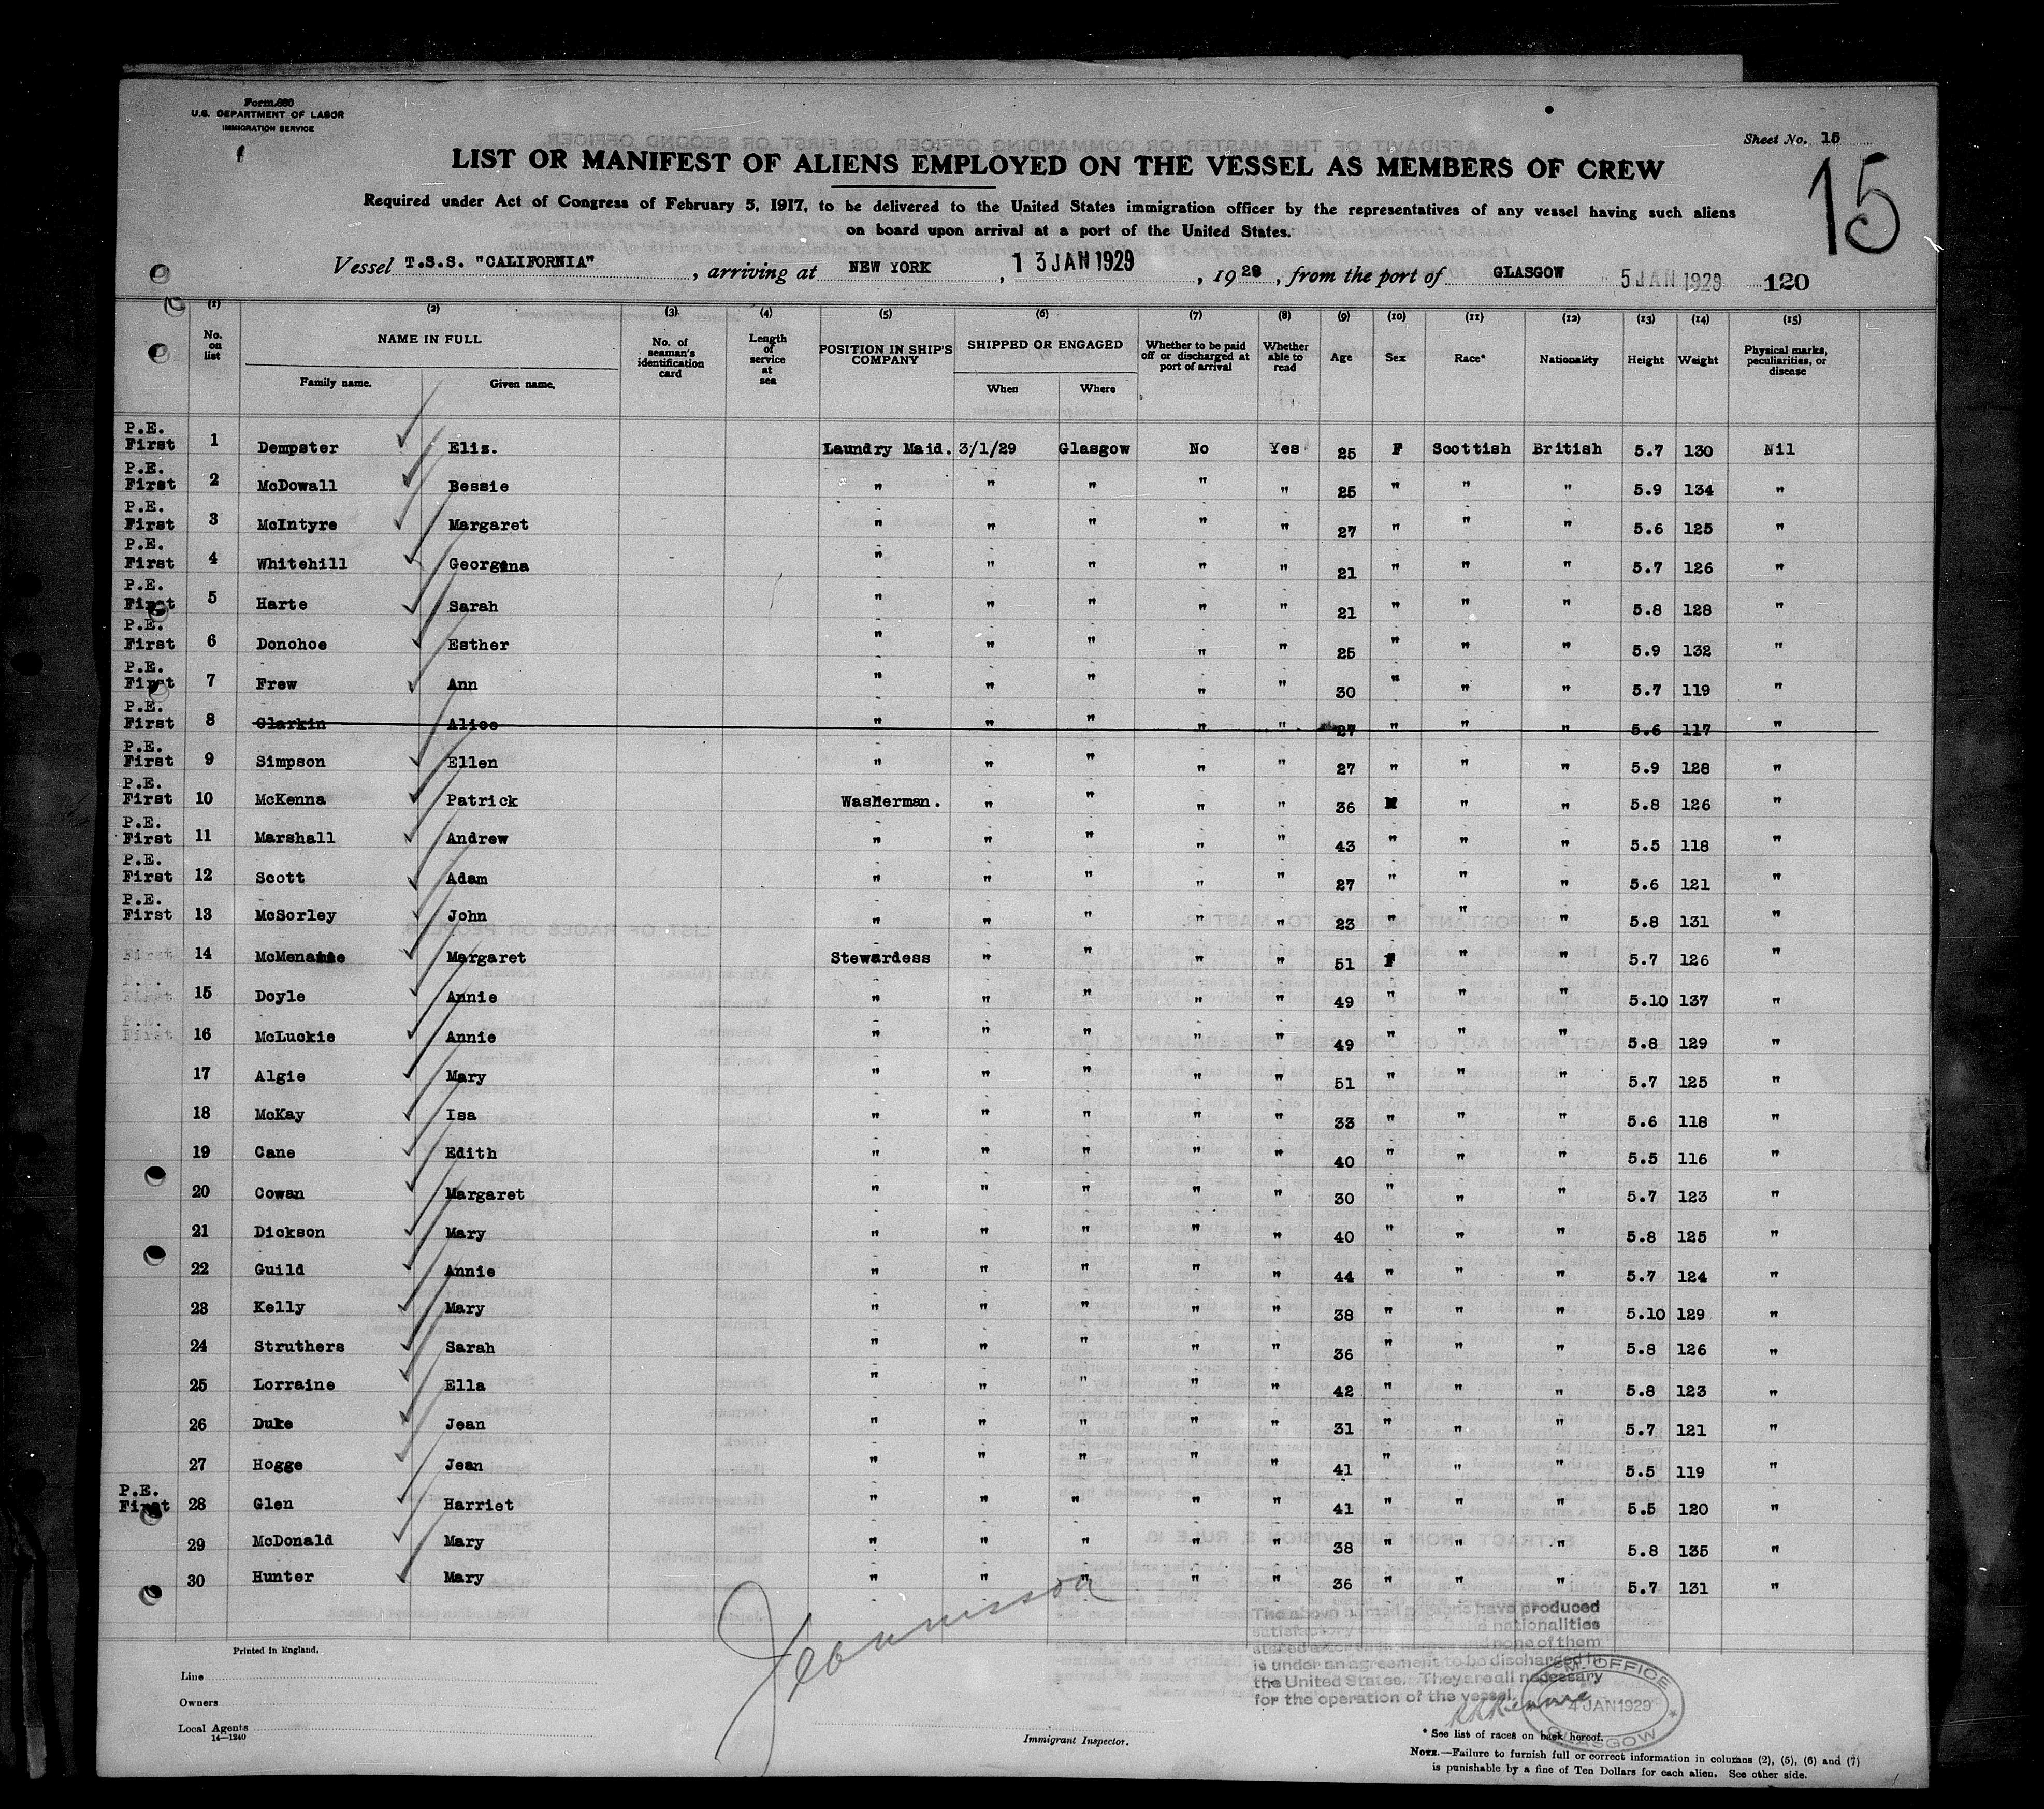 Form 680
U.S. DEPARTMENT OF LABOR
IMMIGRATION SERVICE
Sheet No. 15
15
LIST OR MANIFEST OF ALIENS EMPLOYED ON THE VESSEL AS MEMBERS OF CREW
Required under Act of Congress of February 5, 1917, to be delivered to the United States immigration officer by the representatives of any vessel having such aliens
on board upon arrival at a port of the United States.
Vessel T.S.S. "CALIFORNIA", arriving at NEW YORK, 13 JAN 1929, 1929, from the port of GLASGOW 5 JAN 1929 120
(1) (2) (3) (4) (5) (6) (7) (8) (9) (10) (11) (12) (13) (14) (15)
No. on list NAME IN FULL Family name. Given name. No. of seaman's identification card Length of service at sea POSITION IN SHIP'S COMPANY SHIPPED OR ENGAGED When Where Whether to be paid off or discharged at port of arrival Whether able to read Age Sex Race* Nationality Height Weight Physical marks, peculiarities, or disease
P.E. First 1 Dempster Eliz. Laundry Maid. 3/1/29 Glasgow No Yes 25 F Scottish British 5.7 130 Nil
P.E. First 2 McDowall Bessie " " " " " 25 " " " 5.9 134 "
P.E. First 3 McIntyre Margaret " " " " " 27 " " " 5.6 125 "
P.E. First 4 Whitehill Georgina " " " " " 21 " " " 5.7 126 "
P.E. First 5 Harte Sarah " " " " " 21 " " " 5.8 128 "
P.E. First 6 Donohoe Esther " " " " " 25 " " " 5.9 132 "
P.E. First 7 Frew Ann " " " " " 30 " " " 5.7 119 "
P.E. First 8 Clarkin Alice " " " " " 27 " " " 5.6 117 "
P.E. First 9 Simpson Ellen " " " " " 27 " " " 5.9 128 "
P.E. First 10 McKenna Patrick Washerman. " " " " 36 M " " 5.8 126 "
P.E. First 11 Marshall Andrew " " " " " 43 " " " 5.5 118 "
P.E. First 12 Scott Adam " " " " " 27 " " " 5.6 121 "
P.E. First 13 McSorley John " " " " " 23 " " " 5.8 131 "
First 14 Margaret Stewardess " " " " 51 F " " 5.7 126 "
P.E. First 15 Doyle Annie " " " " " 49 " " " 5.10 137 "
P.E. First 16 McLuckie Annie " " " " " 49 " " " 5.8 129 "
17 Algie Mary " " " " " 51 " " " 5.7 125 "
18 McKay Isa " " " " " 33 " " " 5.6 118 "
19 Cane Edith " " " " " 40 " " " 5.5 116 "
20 Cowan Margaret " " " " " 30 " " " 5.7 123 "
21 Dickson Mary " " " " " 40 " " " 5.8 125 "
22 Guild Annie " " " " " 44 " " " 5.7 124 "
23 Kelly Mary " " " " " 38 " " " 5.10 129 "
24 Struthers Sarah " " " " " 36 " " " 5.8 126 "
25 Lorraine Ella " " " " " 42 " " " 5.8 123 "
26 Duke Jean " " " " " 31 " " " 5.7 121 "
27 Hogge Jean " " " " " 41 " " " 5.5 119 "
P.E. First 28 Glen Harriet " " " " " 41 " " " 5.5 120 "
29 McDonald Mary " " " " " 38 " " " 5.8 135 "
30 Hunter Mary " " " " " 36 " " " 5.7 131 "
The above have produced
satisfactory evidence of the nationalities
stated and none of them
is under an agreement to be discharged in
the United States. They are all necessary
for the operation of the vessel.
OFFICE
4 JAN 1929
GLASGOW
Printed in England.
Line
Owners
Local Agents
14—1240
Immigrant Inspector.
* See list of races on back hereof.
NOTE.—Failure to furnish full or correct information in columns (2), (5), (6) and (7)
is punishable by a fine of Ten Dollars for each alien. See other side.